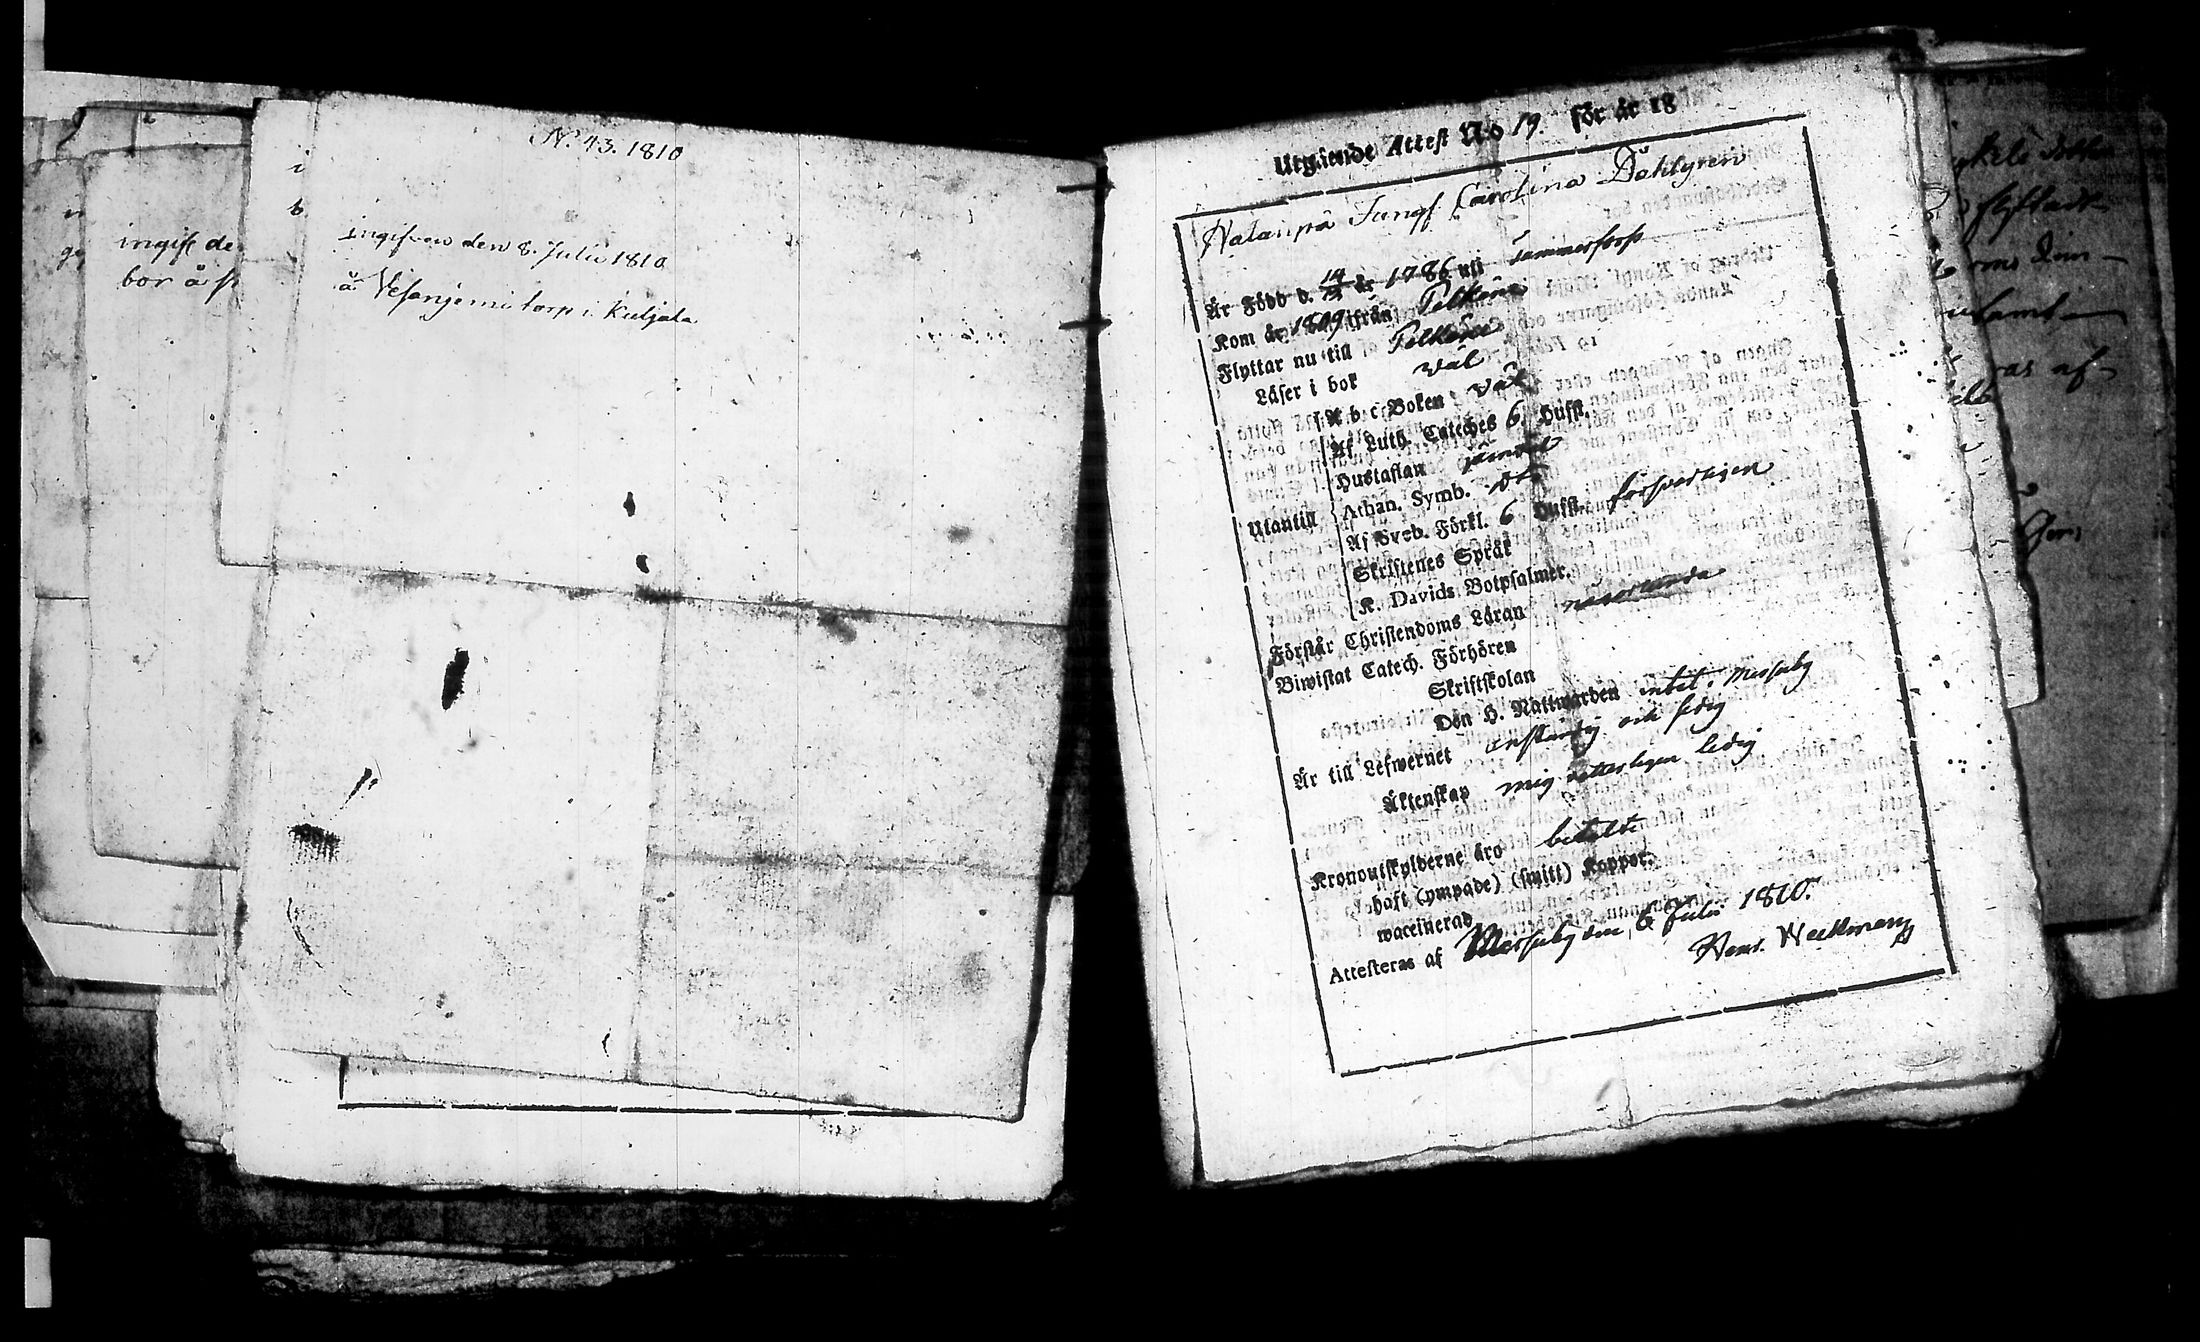 N:º 43. 1810
i
b
ingift de
bor å
ingifven den 8. Julii 1810
å Vesanjemi torp i Kuljala
Utgående Attest N:o 19. för år 18
Jungf. Carolina Dahlgren
Är Född d. 14/12 år 1786 uti Tammerfors
Kom år 1809 ifrån Pelkäne
Flyttar nu till Pelkäne
Läser i bok wäl
Utantill
A b c Boken wäl
Af Luth. Cateches 6. Hufst.
Hustaflan jämwäl
Athan. Symb. dto
Af Sveb. Förkl. 6 Hufst. försvarligen
Skriftenes Språk
K. Davids Botpsalmer.
Förstår Christendoms Läran någorlunda
Biwistat Catech. Förhören
Skriftskolan
Den H. Nattwarden intet i Messuby
Är till Lefwernet anständig och sedig
Äktenskap mig veterligen ledig
Kronoutskylderne äro betalte
haft (ympade) (smitt) Koppor.
waccinerad
Attesteras af Messuby den 6 Julii 1810.
Henr. Weckman